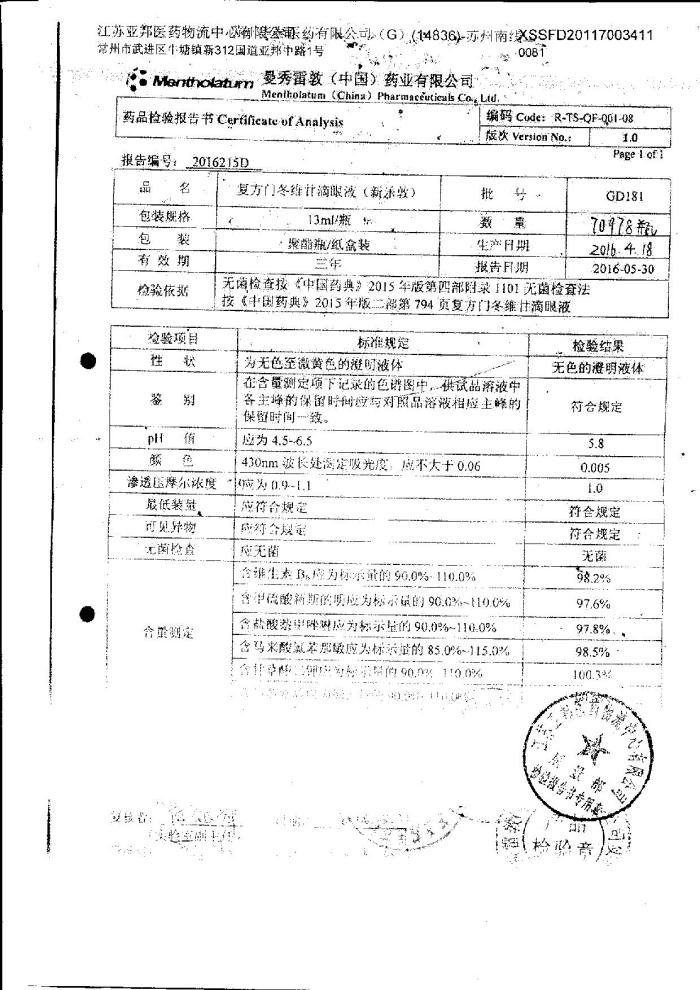 江苏亚邦医药物流中心有限公司 医药有限公司 (G) (14836)-苏州南 XSSFD20117003411
常州市武进区牛塘镇新312国道亚邦中路1号 0081
Mentholatum 曼秀雷敦（中国）药业有限公司
Mentholatum (China) Pharmaceuticals Co., Ltd.
药品检验报告书 Certificate of Analysis
编码 Code: R-TS-QF-Q01-08
版次 Version No.: 1.0
Page 1 of 1
报告编号: 2016215D
品 名 复方门冬维甘滴眼液（新乐敦） 批 号 GD181
包装规格 13ml/瓶 数 量 70978瓶
包 装 聚酯瓶/纸盒装 生产日期 2016.4.18
有效期 三年 报告日期 2016-05-30
检验依据 无菌检查按《中国药典》2015年版第四部附录1101无菌检查法
按《中国药典》2015年版二部第794页复方门冬维甘滴眼液
检验项目 标准规定 检验结果
性 状 为无色至微黄色的澄明液体 无色的澄明液体
鉴 别 在含量测定项下记录的色谱图中，供试品溶液中
各主峰的保留时间应与对照品溶液相应主峰的
保留时间一致。 符合规定
pH 值 应为 4.5~6.5 5.8
颜 色 430nm 波长处测定吸光度，应不大于 0.06 0.005
渗透压摩尔浓度 应为 0.9~1.1 1.0
最低装量 应符合规定 符合规定
可见异物 应符合规定 符合规定
无菌检查 应无菌 无菌
含量测定 含维生素 B₆应为标示量的 90.0%~110.0% 98.2%
含甲硫酸新斯的明应为标示量的 90.0%~110.0% 97.6%
含盐酸萘甲唑啉应为标示量的 90.0%~110.0% 97.8%
含马来酸氯苯那敏应为标示量的 85.0%~115.0% 98.5%
含甘草酸二钾应为标示量的 90.0% 110.0% 100.3%
江苏亚邦医药物流中心有限公司
质量部
检验报告书专用章
复核者:
（实验室副主任）
检验章